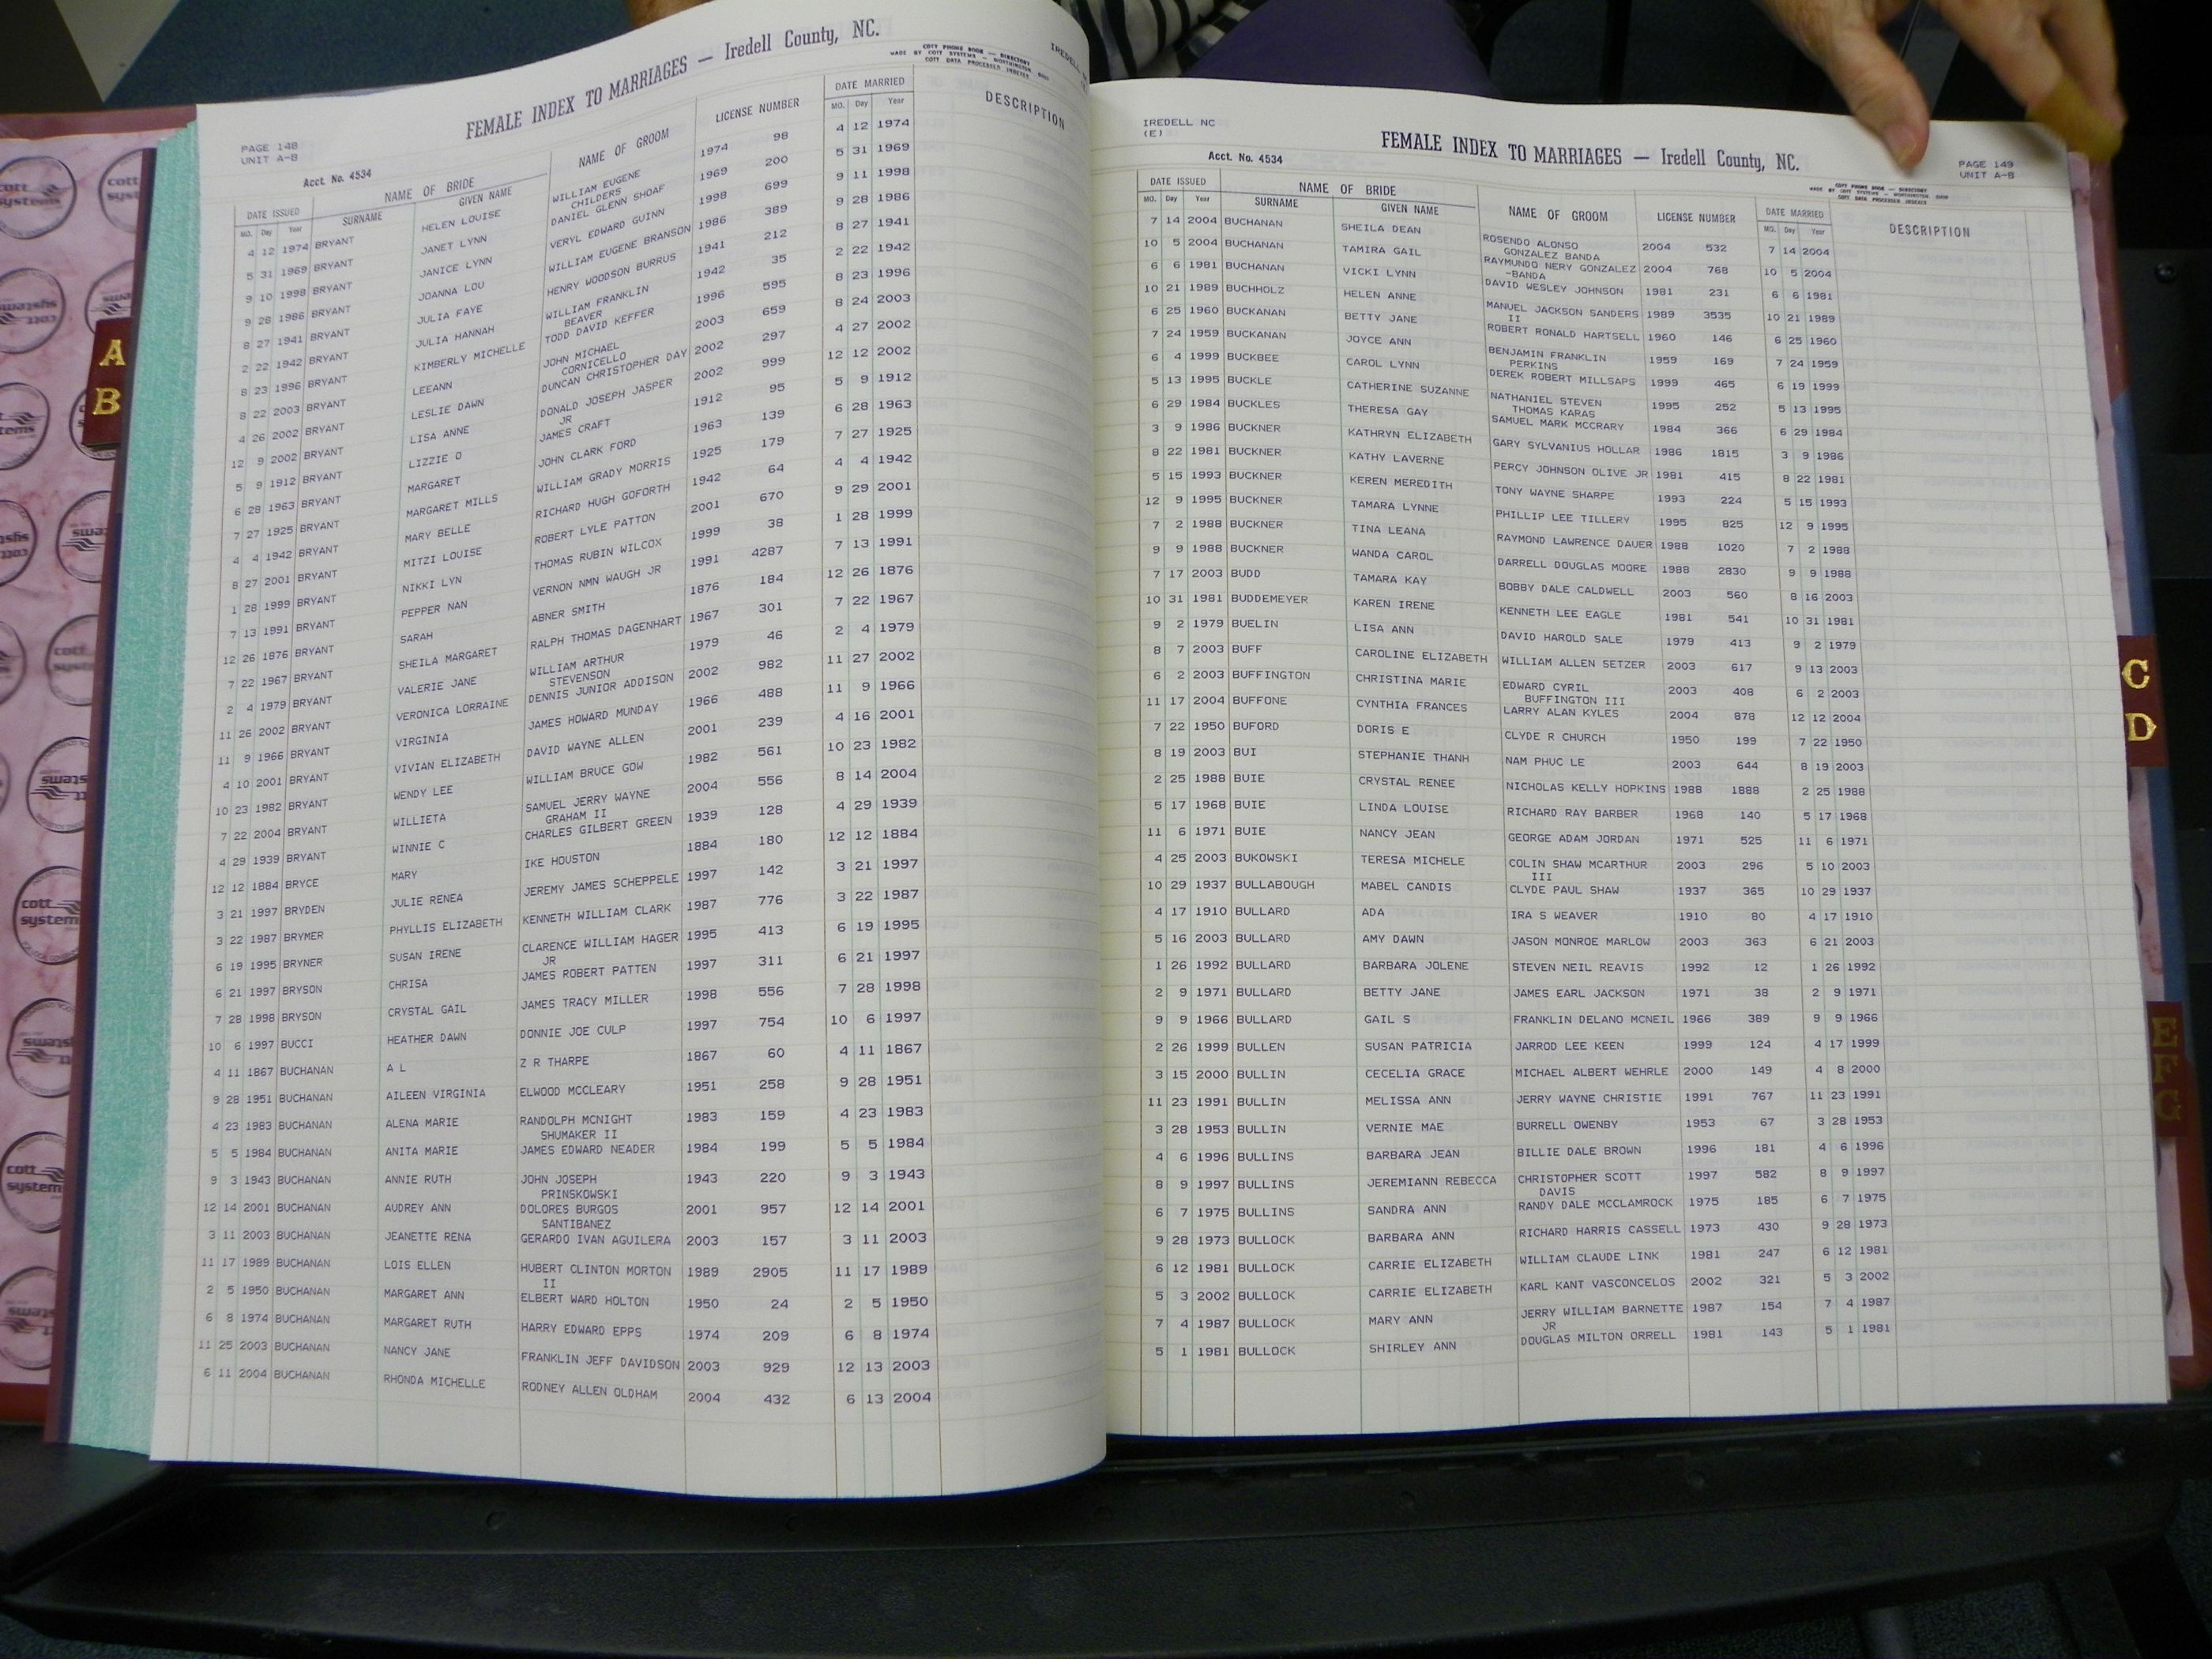 PAGE 148
UNIT A-B
FEMALE INDEX TO MARRIAGES — Iredell County, NC.
MADE BY COTT SYSTEMS — WORTHINGTON OHIO
COTT PHONE BOOK — DIRECTORY
COTT DATA PROCESSED INDEXES
Acct. No. 4534
DATE ISSUED NAME OF BRIDE NAME OF GROOM LICENSE NUMBER DATE MARRIED DESCRIPTION
MO. Day Year SURNAME GIVEN NAME MO. Day Year
4 12 1974 BRYANT HELEN LOUISE WILLIAM EUGENE 1974 98 4 12 1974
CHILDERS
5 31 1969 BRYANT JANET LYNN DANIEL GLENN SHOAF 1969 200 5 31 1969
9 10 1998 BRYANT JANICE LYNN VERYL EDWARD GUINN 1998 699 9 11 1998
9 28 1986 BRYANT JOANNA LOU WILLIAM EUGENE BRANSON 1986 389 9 28 1986
8 27 1941 BRYANT JULIA FAYE HENRY WOODSON BURRUS 1941 212 8 27 1941
2 22 1942 BRYANT JULIA HANNAH WILLIAM FRANKLIN 1942 35 2 22 1942
BEAVER
8 23 1996 BRYANT KIMBERLY MICHELLE TODD DAVID KEFFER 1996 595 8 23 1996
8 22 2003 BRYANT LEEANN JOHN MICHAEL 2003 659 8 24 2003
CORNICELLO
4 26 2002 BRYANT LESLIE DAWN DUNCAN CHRISTOPHER DAY 2002 297 4 27 2002
12 9 2002 BRYANT LISA ANNE DONALD JOSEPH JASPER 2002 999 12 12 2002
JR
5 9 1912 BRYANT LIZZIE O JAMES CRAFT 1912 95 5 9 1912
6 28 1963 BRYANT MARGARET JOHN CLARK FORD 1963 139 6 28 1963
7 27 1925 BRYANT MARGARET MILLS WILLIAM GRADY MORRIS 1925 179 7 27 1925
4 4 1942 BRYANT MARY BELLE RICHARD HUGH GOFORTH 1942 64 4 4 1942
8 27 2001 BRYANT MITZI LOUISE ROBERT LYLE PATTON 2001 670 9 29 2001
1 28 1999 BRYANT NIKKI LYN THOMAS RUBIN WILCOX 1999 38 1 28 1999
7 13 1991 BRYANT PEPPER NAN VERNON NMN WAUGH JR 1991 4287 7 13 1991
12 26 1876 BRYANT SARAH ABNER SMITH 1876 184 12 26 1876
7 22 1967 BRYANT SHEILA MARGARET RALPH THOMAS DAGENHART 1967 301 7 22 1967
2 4 1979 BRYANT VALERIE JANE WILLIAM ARTHUR 1979 46 2 4 1979
STEVENSON
11 26 2002 BRYANT VERONICA LORRAINE DENNIS JUNIOR ADDISON 2002 982 11 27 2002
11 9 1966 BRYANT VIRGINIA JAMES HOWARD MUNDAY 1966 488 11 9 1966
4 10 2001 BRYANT VIVIAN ELIZABETH DAVID WAYNE ALLEN 2001 239 4 16 2001
10 23 1982 BRYANT WENDY LEE WILLIAM BRUCE GOW 1982 561 10 23 1982
7 22 2004 BRYANT WILLIETA SAMUEL JERRY WAYNE 2004 556 8 14 2004
GRAHAM II
4 29 1939 BRYANT WINNIE C CHARLES GILBERT GREEN 1939 128 4 29 1939
12 12 1884 BRYCE MARY IKE HOUSTON 1884 180 12 12 1884
3 21 1997 BRYDEN JULIE RENEA JEREMY JAMES SCHEPPELE 1997 142 3 21 1997
3 22 1987 BRYMER PHYLLIS ELIZABETH KENNETH WILLIAM CLARK 1987 776 3 22 1987
6 19 1995 BRYNER SUSAN IRENE CLARENCE WILLIAM HAGER 1995 413 6 19 1995
JR
6 21 1997 BRYSON CHRISA JAMES ROBERT PATTEN 1997 311 6 21 1997
7 28 1998 BRYSON CRYSTAL GAIL JAMES TRACY MILLER 1998 556 7 28 1998
10 6 1997 BUCCI HEATHER DAWN DONNIE JOE CULP 1997 754 10 6 1997
4 11 1867 BUCHANAN A L Z R THARPE 1867 60 4 11 1867
9 28 1951 BUCHANAN AILEEN VIRGINIA ELWOOD MCCLEARY 1951 258 9 28 1951
4 23 1983 BUCHANAN ALENA MARIE RANDOLPH MCNIGHT 1983 159 4 23 1983
SHUMAKER II
5 5 1984 BUCHANAN ANITA MARIE JAMES EDWARD NEADER 1984 199 5 5 1984
9 3 1943 BUCHANAN ANNIE RUTH JOHN JOSEPH 1943 220 9 3 1943
PRINSKOWSKI
12 14 2001 BUCHANAN AUDREY ANN DOLORES BURGOS 2001 957 12 14 2001
SANTIBANEZ
3 11 2003 BUCHANAN JEANETTE RENA GERARDO IVAN AGUILERA 2003 157 3 11 2003
11 17 1989 BUCHANAN LOIS ELLEN HUBERT CLINTON MORTON 1989 2905 11 17 1989
II
2 5 1950 BUCHANAN MARGARET ANN ELBERT WARD HOLTON 1950 24 2 5 1950
6 8 1974 BUCHANAN MARGARET RUTH HARRY EDWARD EPPS 1974 209 6 8 1974
11 25 2003 BUCHANAN NANCY JANE FRANKLIN JEFF DAVIDSON 2003 929 12 13 2003
6 11 2004 BUCHANAN RHONDA MICHELLE RODNEY ALLEN OLDHAM 2004 432 6 13 2004
IREDELL NC
(E)
FEMALE INDEX TO MARRIAGES — Iredell County, NC.
PAGE 149
UNIT A-B
Acct. No. 4534
COTT PHONE BOOK — DIRECTORY
MADE BY COTT SYSTEMS — WORTHINGTON OHIO
COTT DATA PROCESSED INDEXES
DATE ISSUED NAME OF BRIDE NAME OF GROOM LICENSE NUMBER DATE MARRIED DESCRIPTION
MO. Day Year SURNAME GIVEN NAME MO. Day Year
7 14 2004 BUCHANAN SHEILA DEAN ROSENDO ALONSO 2004 532 7 14 2004
GONZALEZ BANDA
10 5 2004 BUCHANAN TAMIRA GAIL RAYMUNDO NERY GONZALEZ 2004 768 10 5 2004
-BANDA
6 6 1981 BUCHANAN VICKI LYNN DAVID WESLEY JOHNSON 1981 231 6 6 1981
10 21 1989 BUCHHOLZ HELEN ANNE MANUEL JACKSON SANDERS 1989 3535 10 21 1989
II
6 25 1960 BUCKANAN BETTY JANE ROBERT RONALD HARTSELL 1960 146 6 25 1960
7 24 1959 BUCKANAN JOYCE ANN BENJAMIN FRANKLIN 1959 169 7 24 1959
PERKINS
6 4 1999 BUCKBEE CAROL LYNN DEREK ROBERT MILLSAPS 1999 465 6 19 1999
5 13 1995 BUCKLE CATHERINE SUZANNE NATHANIEL STEVEN 1995 252 5 13 1995
THOMAS KARAS
6 29 1984 BUCKLES THERESA GAY SAMUEL MARK MCCRARY 1984 366 6 29 1984
3 9 1986 BUCKNER KATHRYN ELIZABETH GARY SYLVANIUS HOLLAR 1986 1815 3 9 1986
8 22 1981 BUCKNER KATHY LAVERNE PERCY JOHNSON OLIVE JR 1981 415 8 22 1981
5 15 1993 BUCKNER KEREN MEREDITH TONY WAYNE SHARPE 1993 224 5 15 1993
12 9 1995 BUCKNER TAMARA LYNNE PHILLIP LEE TILLERY 1995 825 12 9 1995
7 2 1988 BUCKNER TINA LEANA RAYMOND LAWRENCE DAUER 1988 1020 7 2 1988
9 9 1988 BUCKNER WANDA CAROL DARRELL DOUGLAS MOORE 1988 2830 9 9 1988
7 17 2003 BUDD TAMARA KAY BOBBY DALE CALDWELL 2003 560 8 16 2003
10 31 1981 BUDDEMEYER KAREN IRENE KENNETH LEE EAGLE 1981 541 10 31 1981
9 2 1979 BUELIN LISA ANN DAVID HAROLD SALE 1979 413 9 2 1979
8 7 2003 BUFF CAROLINE ELIZABETH WILLIAM ALLEN SETZER 2003 617 9 13 2003
6 2 2003 BUFFINGTON CHRISTINA MARIE EDWARD CYRIL 2003 408 6 2 2003
BUFFINGTON III
11 17 2004 BUFFONE CYNTHIA FRANCES LARRY ALAN KYLES 2004 878 12 12 2004
7 22 1950 BUFORD DORIS E CLYDE R CHURCH 1950 199 7 22 1950
8 19 2003 BUI STEPHANIE THANH NAM PHUC LE 2003 644 8 19 2003
2 25 1988 BUIE CRYSTAL RENEE NICHOLAS KELLY HOPKINS 1988 1888 2 25 1988
5 17 1968 BUIE LINDA LOUISE RICHARD RAY BARBER 1968 140 5 17 1968
11 6 1971 BUIE NANCY JEAN GEORGE ADAM JORDAN 1971 525 11 6 1971
4 25 2003 BUKOWSKI TERESA MICHELE COLIN SHAW MCARTHUR 2003 296 5 10 2003
III
10 29 1937 BULLABOUGH MABEL CANDIS CLYDE PAUL SHAW 1937 365 10 29 1937
4 17 1910 BULLARD ADA IRA S WEAVER 1910 80 4 17 1910
5 16 2003 BULLARD AMY DAWN JASON MONROE MARLOW 2003 363 6 21 2003
1 26 1992 BULLARD BARBARA JOLENE STEVEN NEIL REAVIS 1992 12 1 26 1992
2 9 1971 BULLARD BETTY JANE JAMES EARL JACKSON 1971 38 2 9 1971
9 9 1966 BULLARD GAIL S FRANKLIN DELANO MCNEIL 1966 389 9 9 1966
2 26 1999 BULLEN SUSAN PATRICIA JARROD LEE KEEN 1999 124 4 17 1999
3 15 2000 BULLIN CECELIA GRACE MICHAEL ALBERT WEHRLE 2000 149 4 8 2000
11 23 1991 BULLIN MELISSA ANN JERRY WAYNE CHRISTIE 1991 767 11 23 1991
3 28 1953 BULLIN VERNIE MAE BURRELL OWENBY 1953 67 3 28 1953
4 6 1996 BULLINS BARBARA JEAN BILLIE DALE BROWN 1996 181 4 6 1996
8 9 1997 BULLINS JEREMIANN REBECCA CHRISTOPHER SCOTT 1997 582 8 9 1997
DAVIS
6 7 1975 BULLINS SANDRA ANN RANDY DALE MCCLAMROCK 1975 185 6 7 1975
9 28 1973 BULLOCK BARBARA ANN RICHARD HARRIS CASSELL 1973 430 9 28 1973
6 12 1981 BULLOCK CARRIE ELIZABETH WILLIAM CLAUDE LINK 1981 247 6 12 1981
5 3 2002 BULLOCK CARRIE ELIZABETH KARL KANT VASCONCELOS 2002 321 5 3 2002
7 4 1987 BULLOCK MARY ANN JERRY WILLIAM BARNETTE 1987 154 7 4 1987
JR
5 1 1981 BULLOCK SHIRLEY ANN DOUGLAS MILTON ORRELL 1981 143 5 1 1981
A
B
C
D
E
F
G
cott systems